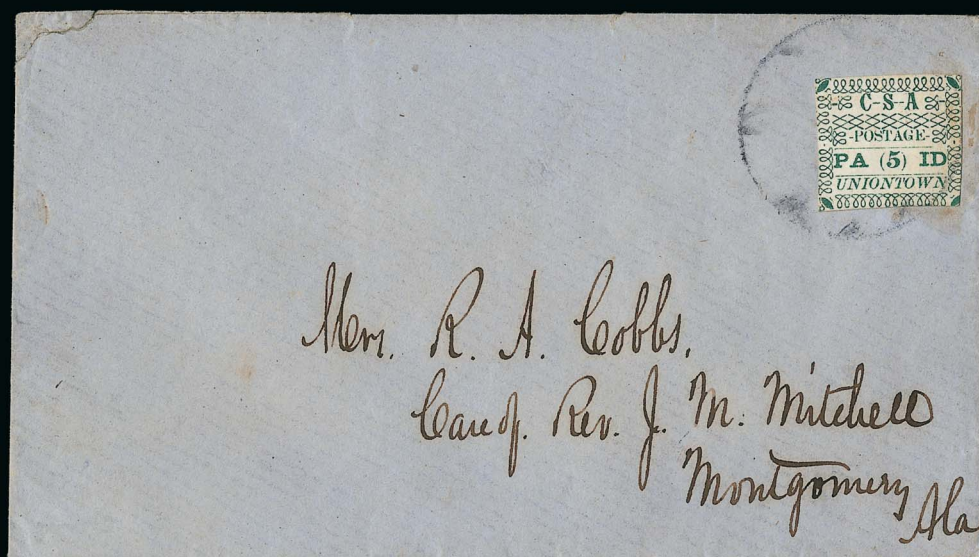 C-S-A
-POSTAGE-
PA (5) ID
UNIONTOWN
Mrs. R. A. Cobbs.
Care of. Rev. J. M. Mitchell
Montgomery
Ala